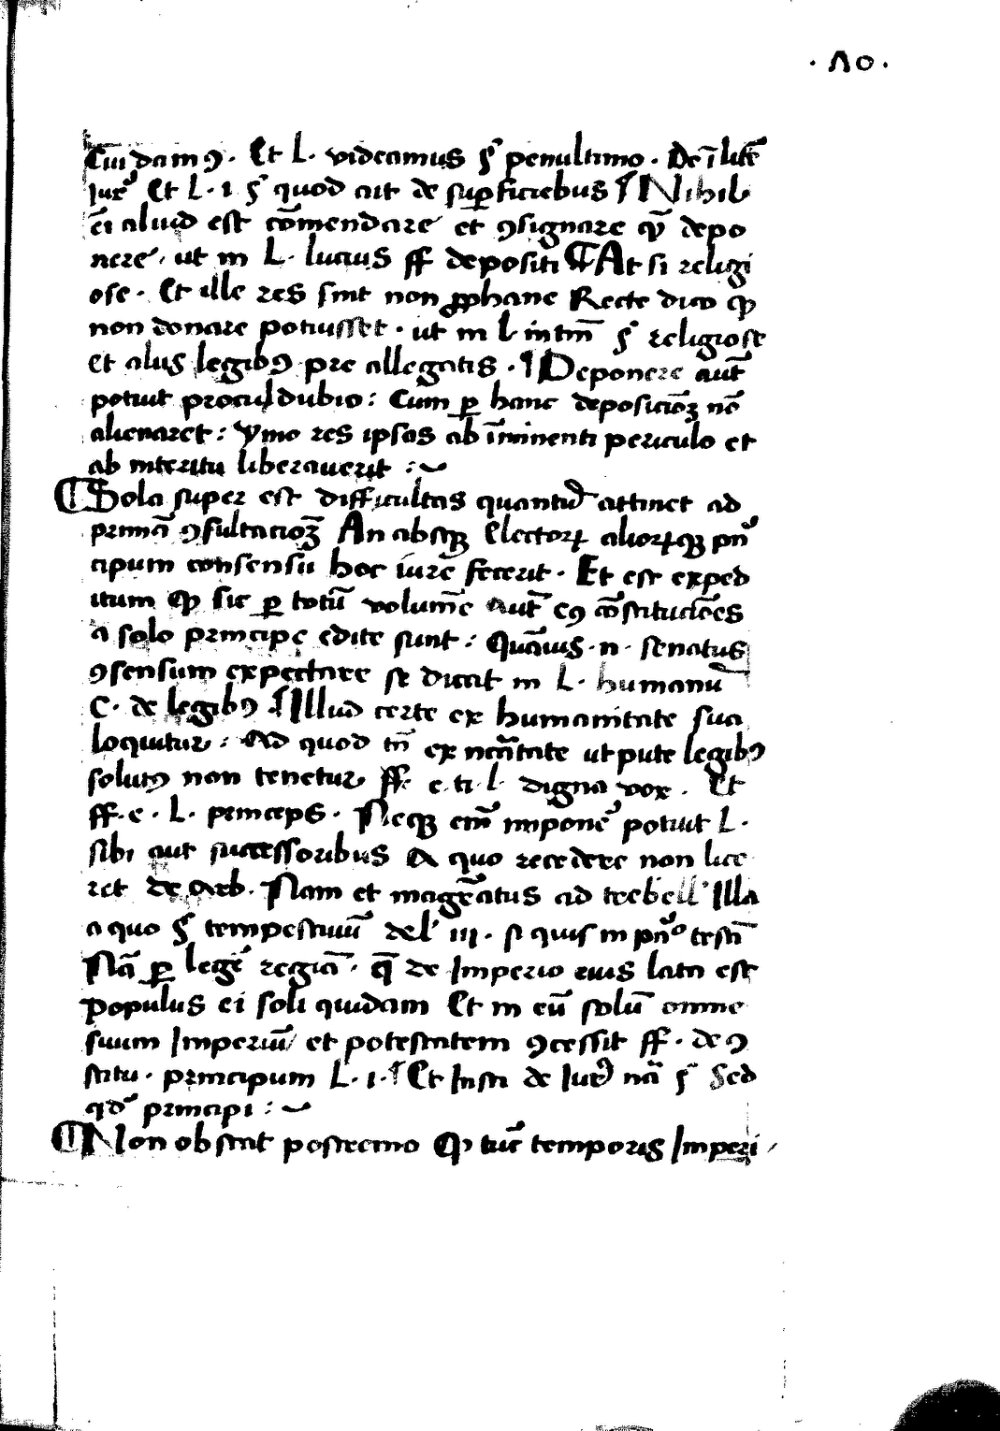 · Λ0 ·
Cuidam ꝰ . Et L. videamus § penultimo . De ī litē
Iurꝰ Et L . 1 § quod ait de suꝑficiebus ¶ Nihil
ei aliud est cōmendare et ꝯsignare qͣ̄ depo
nere , ut in L. lucius ff depositi ¶ At si religi
ose . Et ille res sint non ꝓphane Recte dico ꝙ
non donare potuisset . ut in l intm̄ § religiose
et aliis legibꝰ pre allegatis . ¶ Deponere aut̄
potuit proculdubio : Cum ꝑ hanc deposiciōꝫ nō
alienaret : ymo res ipsas ab īminenti periculo et
ab interitu liberaverit :~
¶ Sola super est difficultas quantū attinet ad
primā ꝯsultacioꝫ An absqꝫ Electoꝝ alioꝝqꝫ pn̄
cipum consensu hoc iure fecerit . Et est exped
itum ꝙ sic ꝑ totū volumē aut̄ eꝰ cōstitucōes
a solo principe edite sunt : Quāuis . n . senatus
ꝯsensum expectare se dicat in L. humanū
C. de legibꝰ ¶ Illud certe ex humanitate sua
loquitur : Ad quod tn̄ ex ncītate utpute legibꝰ
solutꝰ non tenetur ff. e. ti. l. digna vox . Et
ff. e . L . princeps . Neqꝫ em̄ imponē potuit L .
sibi aut successoribus A quo recedere non lice
ret de Arb. Nam et magr̄atus ad trebell' Illa
a quo § tempestiuū del' III . si quis in pn̄º testī
Nā ꝑ legē regiā . q̄ de Imperio eius lata est
Populus ei soli quidam Et in eū solū omne
suum Imperiū et potestatem ꝯcessit ff . de ꝯ
stitu . principum L . 1 . ¶ Et Insti de Iurꝰ nā § Sed
qdˀ principi :~
¶ Non obstat postremo ꝙ tūc temporis Imperi